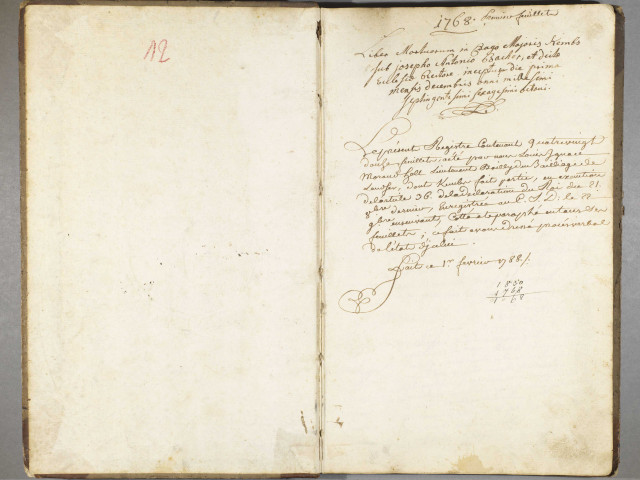 12
1768. premier feuillet
Liber Mortuorum in Pago Majoris Kembs
sub Josepho Antonio Bacher, et dicto
Rectore, inceptus die prima
mensis decembris anni millesimi
septingentesimi sexagesimi octavi.
Le présent Registre Contenant Quatrevingt
douze feuillet, a été par nous Louis Ignace
Moreau Lieutenant Baillÿ du Bailliage de
Landser, dont Kembs fait partie, en execution
de l'article 36. de la declaration du Roi du 21.
8bre dernier, Enregistrée au C. S. D. le 22
9bre ensuivant, Cotté et paraphé en tous ses
feuillets; ce fait avons dressé procès verbal
de l'état d'jcelui.
Fait ce 1er. fevrier 1788./.
1850
1768